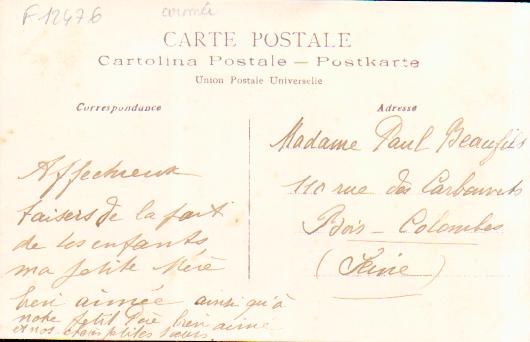 F 12476
CARTE POSTALE
Cartolina Postale — Postkarte
Union Postale Universelle
Correspondance
Adresse
Affectueux
baisers de la part
de tes enfants
ma petite Mère
bien aimée ainsi qu'à
notre petit Père bien aimé
et nos petites sœurs
Madame Paul Beaufils
110 rue des Carbonnets
Bois - Colombes
(Seine)